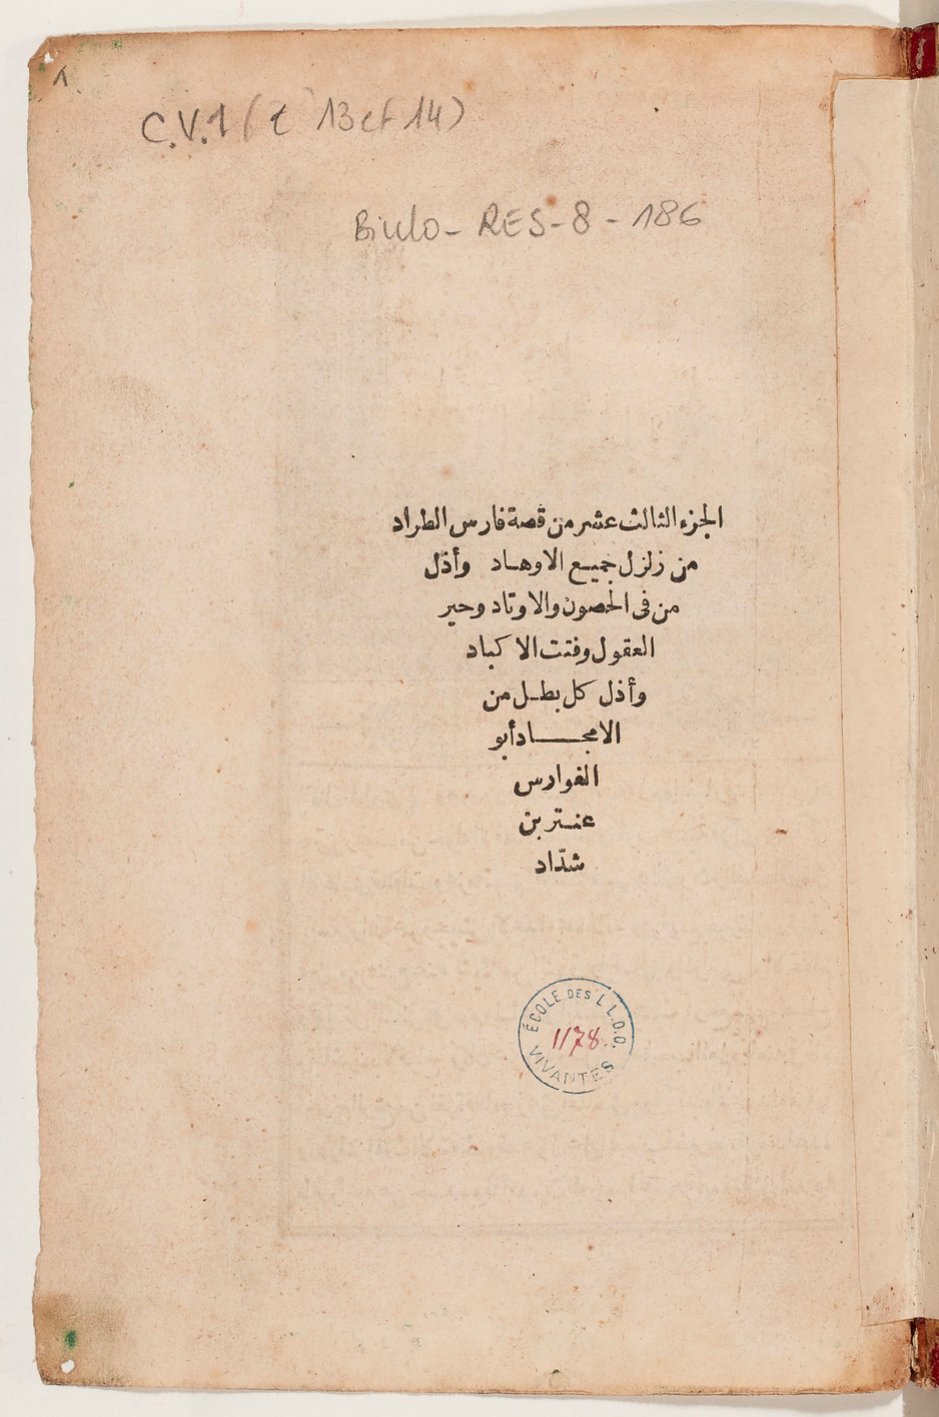 1
C.V.1 (t 13 et 14)
Biulo - RES - 8 - 186
الجزء الثالث عشر من قصة فارس الطراد
من زلزل جميع الاوهاد وأذل
من فى الحصون والاوتاد وحير
العقول وفتت الاكباد
وأذل كل بطل من
الامجاد أبو
الفوارس
عنتر بن
شدّاد
ÉCOLE DES L.L.O.O.
1178
VIVANTES